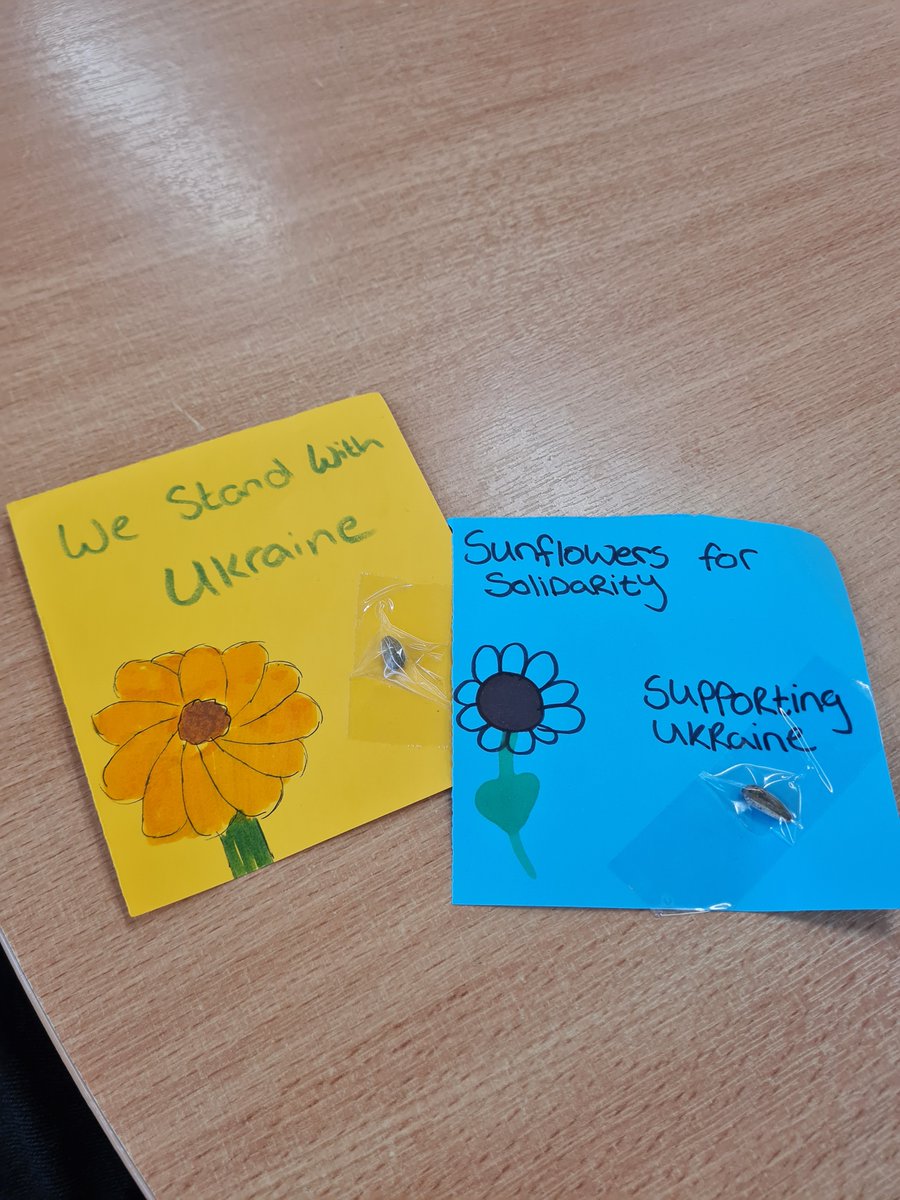 We Stand With
Ukraine
Sunflowers for
Solidarity
Supporting
Ukraine